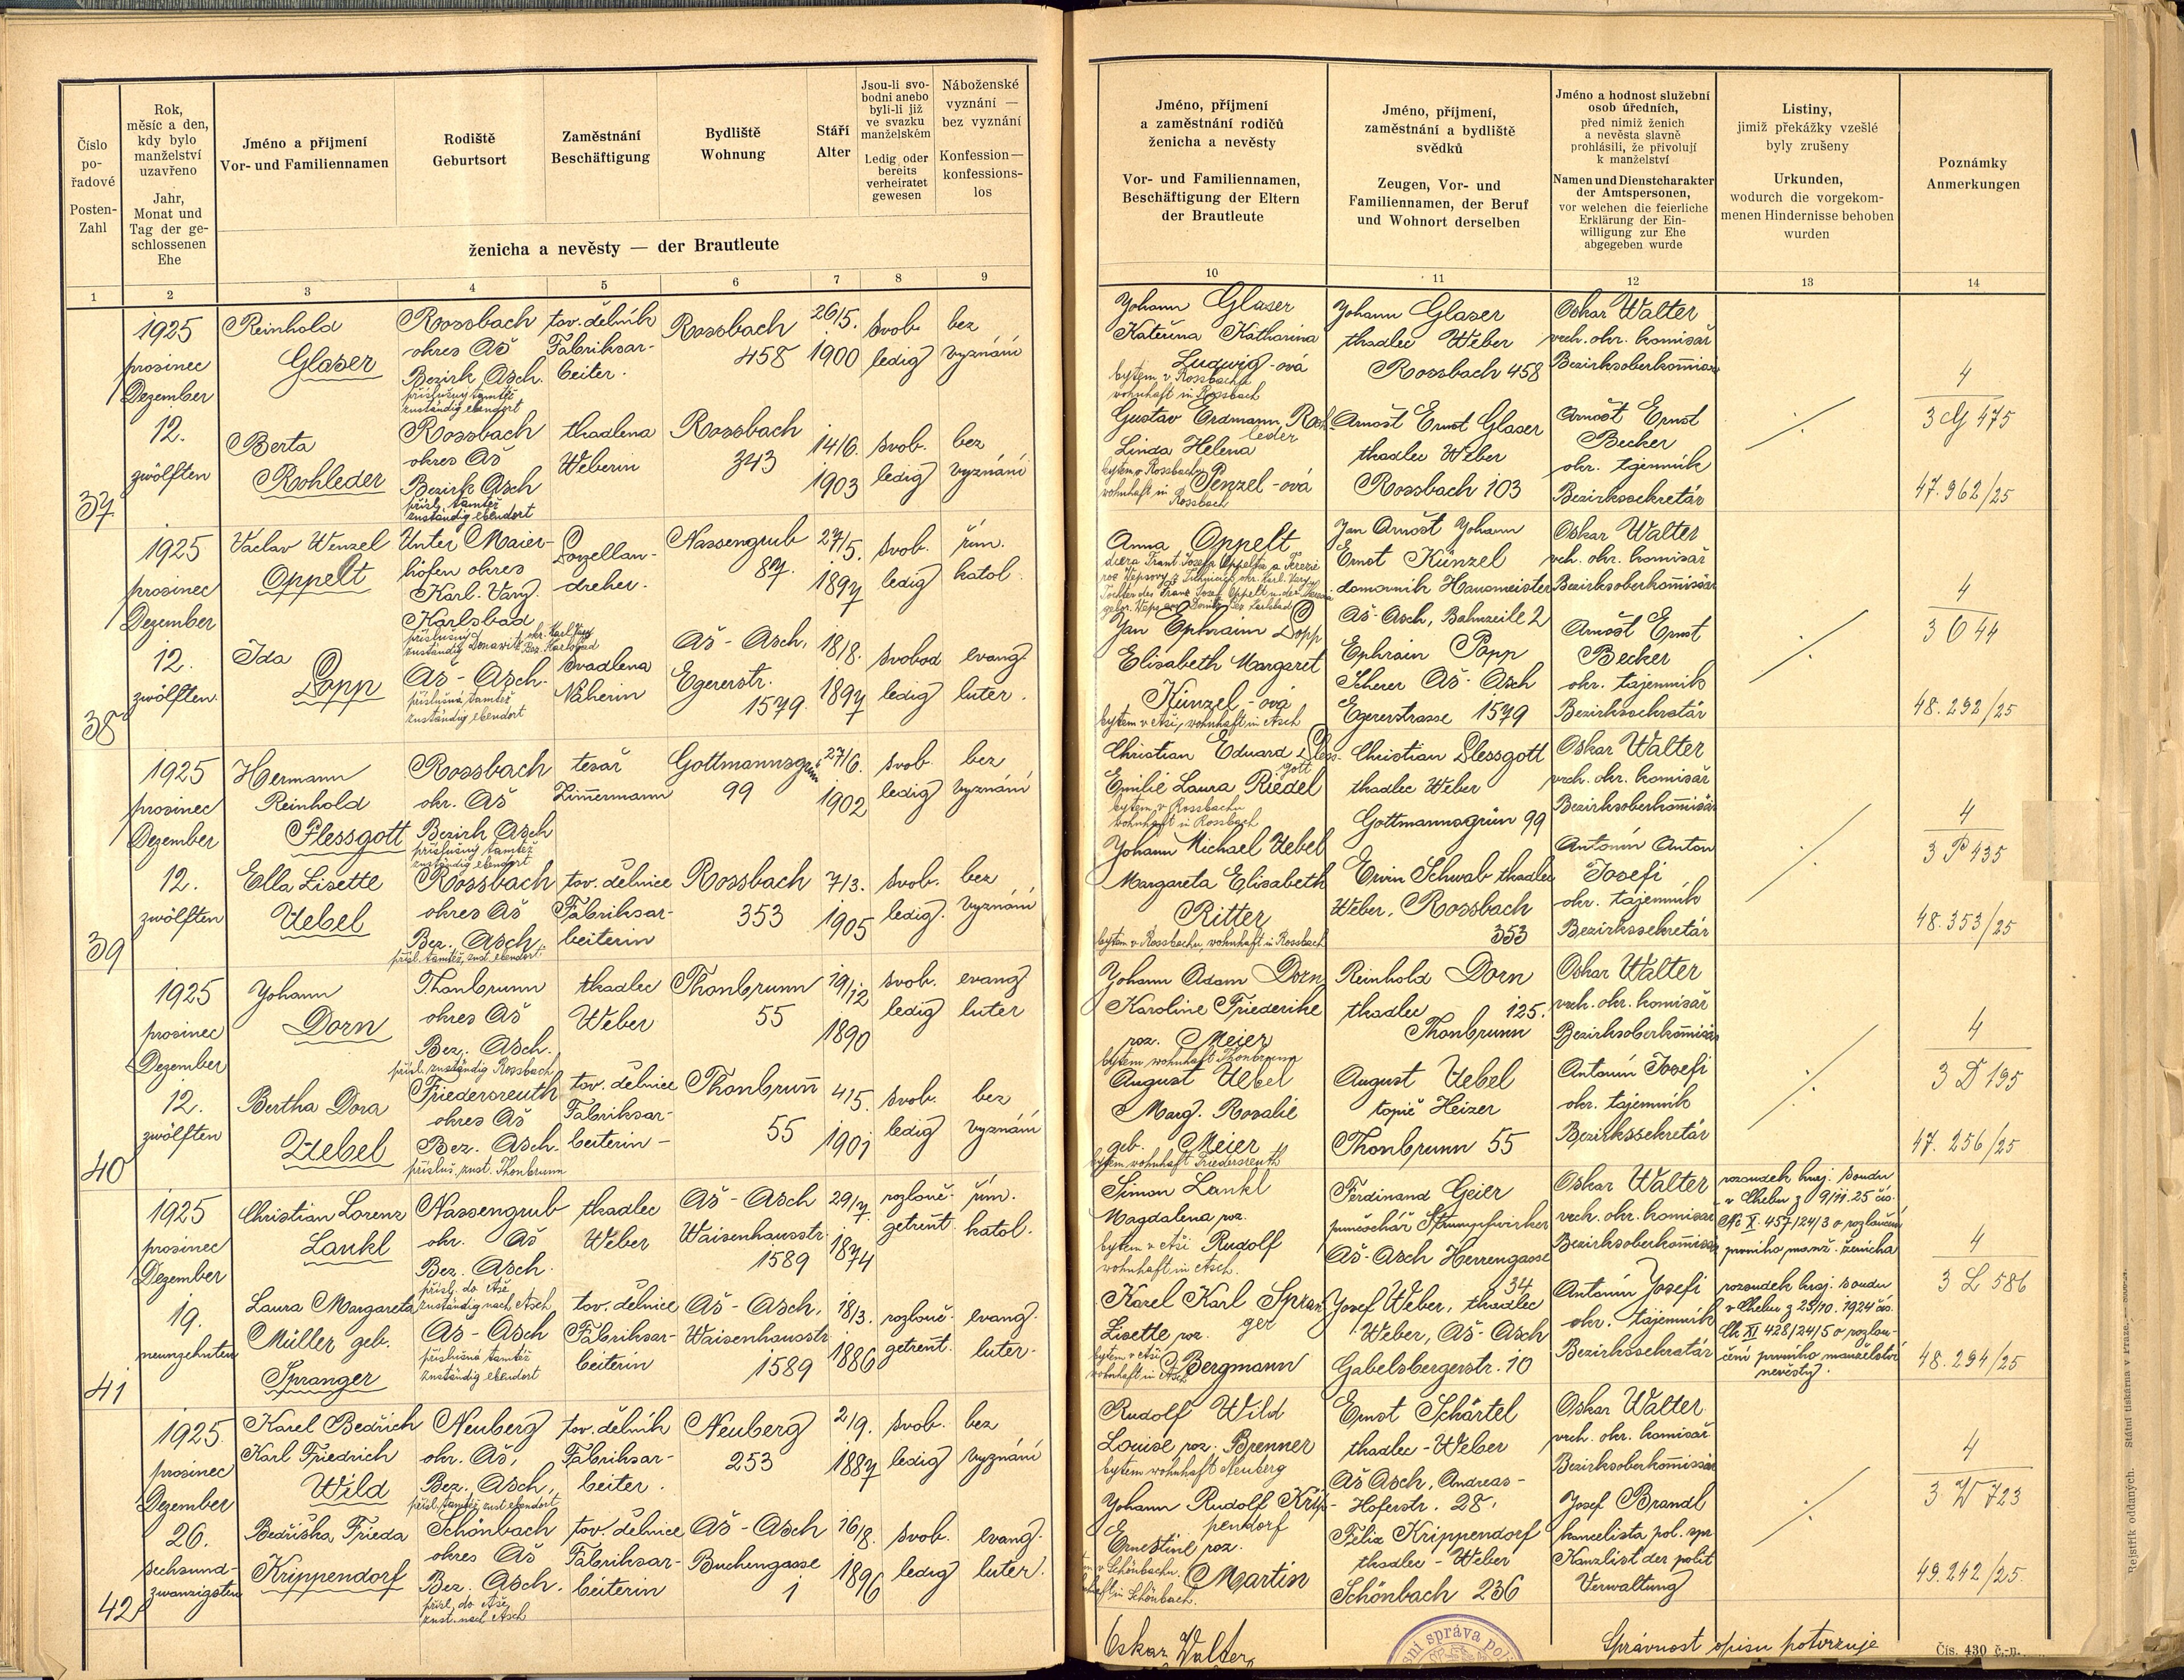 Číslo
po-
řadové
Posten-
Zahl
Rok,
měsíc a den,
kdy bylo
manželství
uzavřeno
Jahr,
Monat und
Tag der ge-
schlossenen
Ehe
Jméno a příjmení
Vor- und Familiennamen
Rodiště
Geburtsort
Zaměstnání
Beschäftigung
Bydliště
Wohnung
Stáří
Alter
Jsou-li svo-
bodni anebo
byli-li již
ve svazku
manželském
Ledig oder
bereits
verheiratet
gewesen
Náboženské
vyznání —
bez vyznání
Konfession —
konfessions-
los
ženicha a nevěsty — der Brautleute
Jméno, příjmení
a zaměstnání rodičů
ženicha a nevěsty
Vor- und Familiennamen,
Beschäftigung der Eltern
der Brautleute
Jméno, příjmení,
zaměstnání a bydliště
svědků
Zeugen, Vor- und
Familiennamen, der Beruf
und Wohnort derselben
Jméno a hodnost služební
osob úředních,
před nimiž ženich
a nevěsta slavně
prohlásili, že přivolují
k manželství
Namen und Dienstcharakter
der Amtspersonen,
vor welchen die feierliche
Erklärung der Ein-
willigung zur Ehe
abgegeben wurde
Listiny,
jimiž překážky vzešlé
byly zrušeny
Urkunden,
wodurch die vorgekom-
menen Hindernisse behoben
wurden
Poznámky
Anmerkungen
1 2 3 4 5 6 7 8 9 10 11 12 13 14
37
1925
prosinec
Dezember
12.
zwölften
Reinhold
Glaser
Rossbach
okres Aš
Bezirk Asch.
příslušný tamtéž
zuständig ebendort
tov. dělník
Fabriksar-
beiter.
Rossbach
458
26/5.
1900
svob.
ledig
bez
vyznání
Berta
Rohleder
Rossbach
okres Aš
Bezirk Asch
přísl. tamtéž
zuständig ebendort
tkadlena
Weberin
Rossbach
343
14/6.
1903
svob.
ledig
bez
vyznání
Johann Glaser
Kateřina Katharina
Ludwig-ová
bytem v Rossbachu
wohnhaft in Rossbach
Gustav Erdmann Roh-
leder
Linda Helena
bytem v Rossbachu Penzel-ová
wohnhaft in
Rossbach
Johann Glaser
tkadlec Weber
Rossbach 458
Arnošt Ernst Glaser
tkadlec Weber
Rossbach 103
Oskar Walter
vrch. okr. komisař
Bezirksoberkommissär
Arnošt Ernst
Becker
okr. tajemník
Bezirkssekretär
4
3 G 475
47.962/25
38
1925
prosinec
Dezember
12.
zwölften.
Václav Wenzel
Oppelt
Unter Maier-
höfen okres
Karl. Vary.
Karlsbad
Porzellan-
dreher.
Nassengrub
87.
27/5.
1897
svob.
ledig
řím.
katol.
Ida
Popp
Aš - Asch.
příslušná tamtéž
zuständig ebendort
švadlena
Näherin
Aš - Asch,
Egererstr.
1579.
18/8.
1897
svobod
ledig
evang.
luter.
Anna Oppelt
Jan Ephraim Popp
Elisabeth Margaret
Künzel-ová
bytem v Aši, wohnhaft in Asch
Jan Arnošt Johann
Ernst Künzel
domovník Hausmeister
Aš-Asch, Bahnzeile 2
Ephraim Popp
Scherer Aš-Asch
Egererstrasse 1579
Oskar Walter
vrch. okr. komisař
Bezirksoberkommissär
Arnošt Ernst
Becker
okr. tajemník
Bezirkssekretär
4
3 O 44
48.292/25
39
1925
prosinec
Dezember
12.
zwölften
Hermann
Reinhold
Plessgott
Rossbach
okr. Aš
Bezirk Asch
příslušný tamtéž
zuständig ebendort
tesař
Zimmermann
Gottmannsgrün
99
27/6.
1902
svob.
ledig
bez
vyznání
Ella Lisette
Uebel
Rossbach
okres Aš
Bez. Asch.
přísl. tamtéž, zust. ebendort.
tov. dělnice
Fabriksar-
beiterin
Rossbach
353
7/3.
1905
svob.
ledig.
bez
vyznání
Christian Eduard Pless-
gott
Emilie Laura Riedel
bytem v Rossbachu
wohnhaft in Rossbach
Johann Michael Uebel
Margareta Elisabeth
Ritter
bytem v Rossbachu, wohnhaft in Rossbach
Christian Plessgott
tkadlec Weber
Gottmannsgrün 99
Erwin Schwab tkadlec
Weber, Rossbach
353
Oskar Walter
vrch. okr. komisař
Bezirksoberkommissär
Antonín Anton
Josefi
okr. tajemník
Bezirkssekretär
4
3 P 435
48.353/25
40
1925
prosinec
Dezember
12.
zwölften
Johann
Dorn
Thonbrunn
okres Aš
Bez. Asch.
přísl. zuständig Rossbach
tkadlec
Weber
Thonbrunn
55
19/12
1890
svob.
ledig
evang
luter
Bertha Dora
Uebel
Friedersreuth
okres Aš
Bez. Asch.
přísluš. zust. Thonbrunn
tov. dělnice
Fabriksar-
beiterin-
Thonbrunn
55
4/5.
1901
svob.
ledig
bez
vyznání
Johann Adam Dorn
Karoline Friederike
roz. Meier
bytem wohnhaft Thonbrunn
August Uebel
Marg. Rosalie
geb. Meier
bytem wohnhaft Friedersreuth
Reinhold Dorn
tkadlec 125.
Thonbrunn
August Uebel
topič Heizer
Thonbrunn 55
Oskar Walter
vrch. okr. komisař
Bezirksoberkommissär
Antonín Josefi
okr. tajemník
Bezirkssekretär
4
3 D 195
47.256/25
41
1925
prosinec
Dezember
19.
neunzehnten
Christian Lorenz
Lankl
Nassengrub
okr. Aš
Bez. Asch.
přísl. do Aše
zuständig nach Asch
tkadlec
Weber
Aš - Asch
Waisenhausstr.
1589
29/7.
1874
rozlouč.
getrennt
řím.
katol.
Laura Margareta
Müller geb.
Spranger
Aš - Asch
příslušná tamtéž
zuständig ebendort
tov. dělnice
Fabriksar-
beiterin
Aš - Asch,
Waisenhausstr
1589
18/3.
1886
rozlouč.
getrennt.
evang.
luter.
Simon Lankl
Magdalena roz.
bytem v Aši Rudolf
wohnhaft in Asch.
Karel Karl Spran-
ger
Lisette roz.
bytem v Aši
wohnhaft in Asch Bergmann
Ferdinand Geier
punčochář Strumpfwirker
Aš-Asch Herrengasse
34
Josef Weber, tkadlec
Weber, Aš-Asch
Gabelsbergerstr. 10
Oskar Walter
vrch. okr. komisař
Bezirksoberkommissär
Antonín Josefi
okr. tajemník
Bezirkssekretär
rozsudek kraj. soudu
v Chebu z 9/11.25 čís.
Ck X. 457/24/3 o rozloučení
prvního manž. ženicha
rozsudek kraj. soudu
v Chebu z 29/10.1924 čís.
Ck XI 428/24/5 o rozlou-
čení prvního manželství
nevěsty.
4
3 L 586
48.294/25
42
1925
prosinec
Dezember
26.
sechsund-
zwanzigsten
Karel Bedřich
Karl Friedrich
Wild
Neuberg
okr. Aš,
Bez. Asch,
přísl. tamtéž, zust. ebendort
tov. dělník
Fabriksar-
beiter.
Neuberg
253
2/9.
1887
svob.
ledig
bez
vyznání
Bedřiška, Frieda
Krippendorf
Schönbach
okres Aš
Bez. Asch.
přísl. do Aše
zust. nach Asch
tov. dělnice
Fabriksar-
beiterin
Aš - Asch
Buchengasse
1
16/8.
1896
svob.
ledig
evang.
luter.
Rudolf Wild
Louise roz. Brenner
bytem wohnhaft Neuberg
Johann Rudolf Krip-
pendorf
Ernestine roz.
v Schönbachu. Martin
in Schönbach.
Ernst Schärtel
tkadlec-Weber
Aš Asch, Andreas-
Hoferstr. 28,
Felix Krippendorf
tkadlec-Weber
Schönbach 236
Oskar Walter
vrch. okr. komisař
Bezirksoberkommissär
Josef Brandl
kancelista pol. spr
Kanzlist der polit
Verwaltung
4
3 W 723
49.242/25.
Oskar Walter
správa
Správnost opisu potvrzuje
Čís. 430 č.-n.
Rejstřík oddaných. Státní tiskárna v Praze.